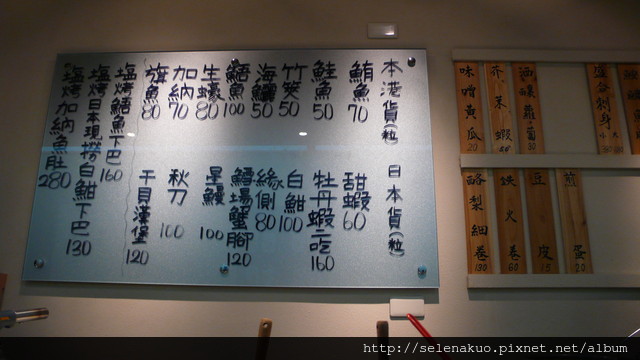 本港貨(粒)
鮪魚 70
鮭魚 50
竹筴 50
海鱺 50
鱰魚 100
生蠔 80
加納 70
旗魚 80
日本貨(粒)
甜蝦 60
牡丹蝦二吃 160
白魽 100
緣側 80
鱈場蟹腳 120
星鰻 100
秋刀 100
干貝漢堡 120
塩烤鱰魚下巴 160
塩烤日本現撈白魽下巴 130
塩烤加納魚肚 280
味噌黃瓜 20
芥茉蝦
酒釀蘿蔔 80
綜合刺身
酪梨細卷 130
鉄火卷 60
豆皮 15
煎蛋 20
http://selenakuo.pixnet.net/album